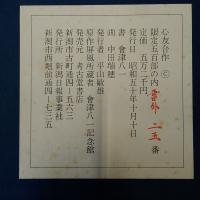 心友合作 ©
限定五百部の内 番外 二五 番
定価 五万二千円
発行日 昭和五十年十月十日
書 會津八一
画 中田瑞穂
発行者 平山敏雄
原作屏風所蔵者 會津八一記念館
発売元 考古堂書店
新潟市古町通四-五六三
発行所 新潟日報事業社
新潟市西堀前通四-七三五